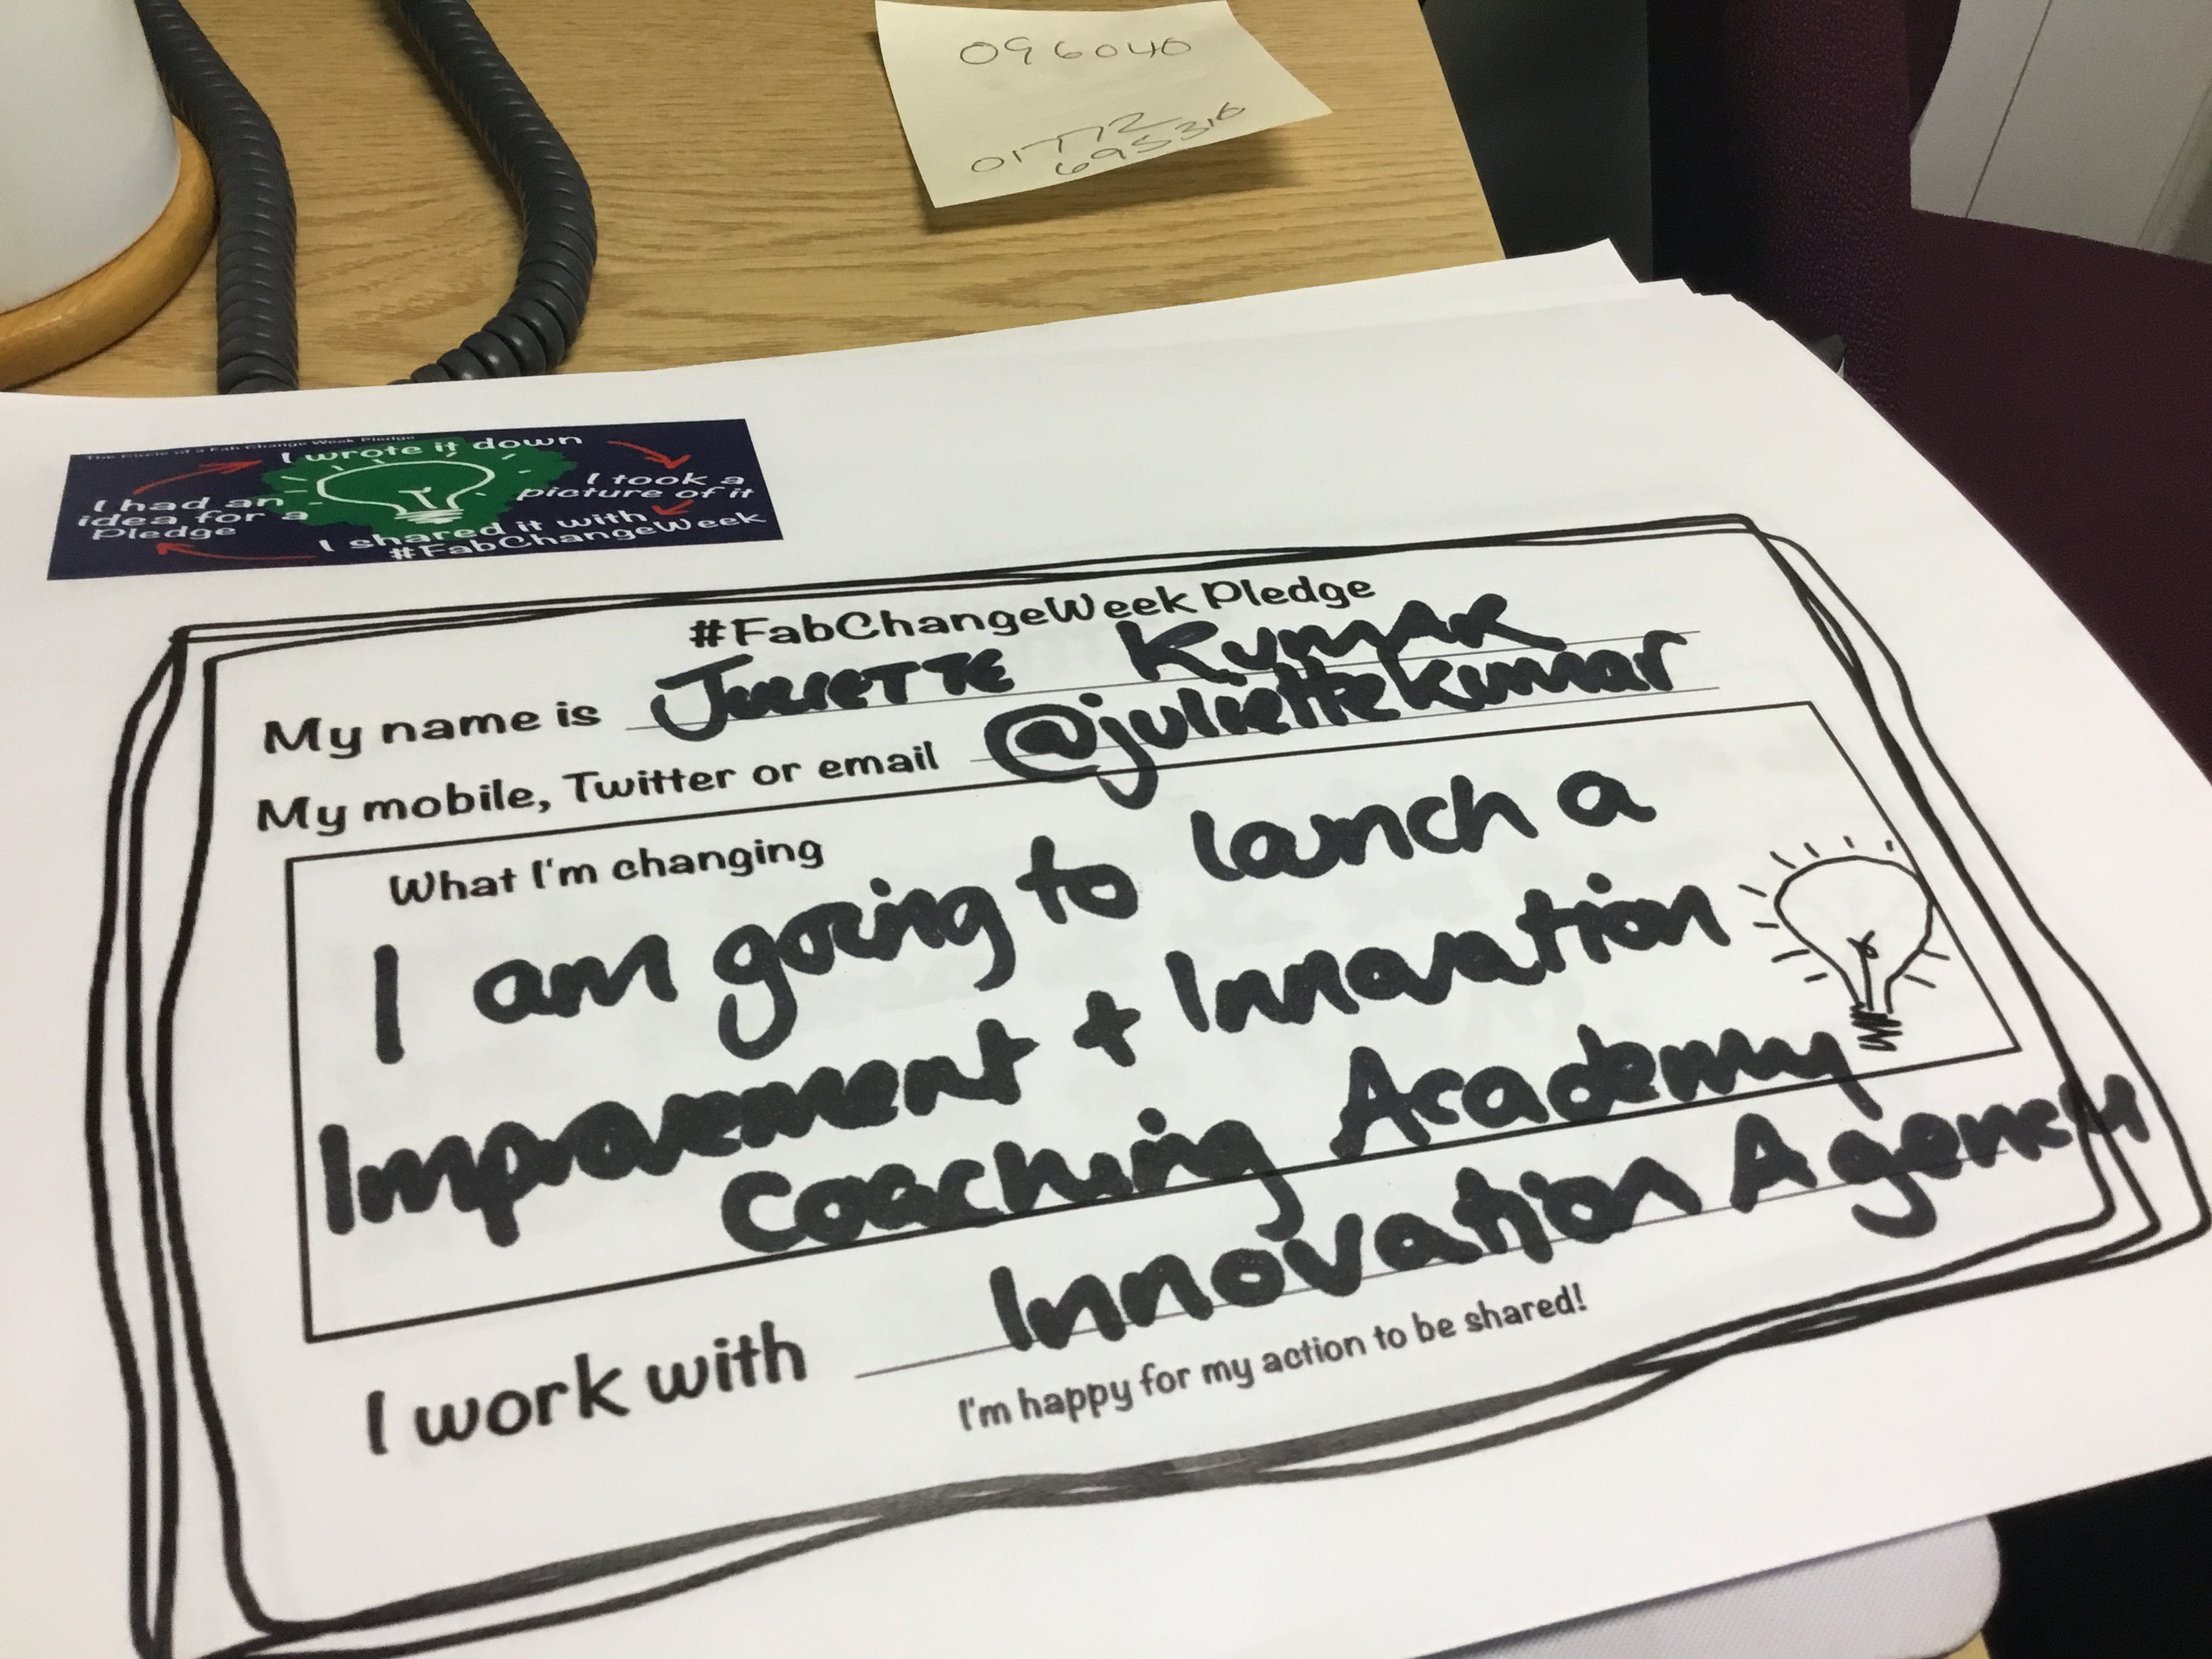 096040
01772
695316
The Circle of a Fab Change Week Pledge
I wrote it down
I took a
picture of it
I had an
idea for a
Pledge
I shared it with
#FabChangeWeek
#FabChangeWeek Pledge
My name is JULIETTE KUMAR
My mobile, Twitter or email @juliettekumar
What I'm changing
I am going to launch a
Improvement + Innovation
Coaching Academy
I work with Innovation Agency
I'm happy for my action to be shared!